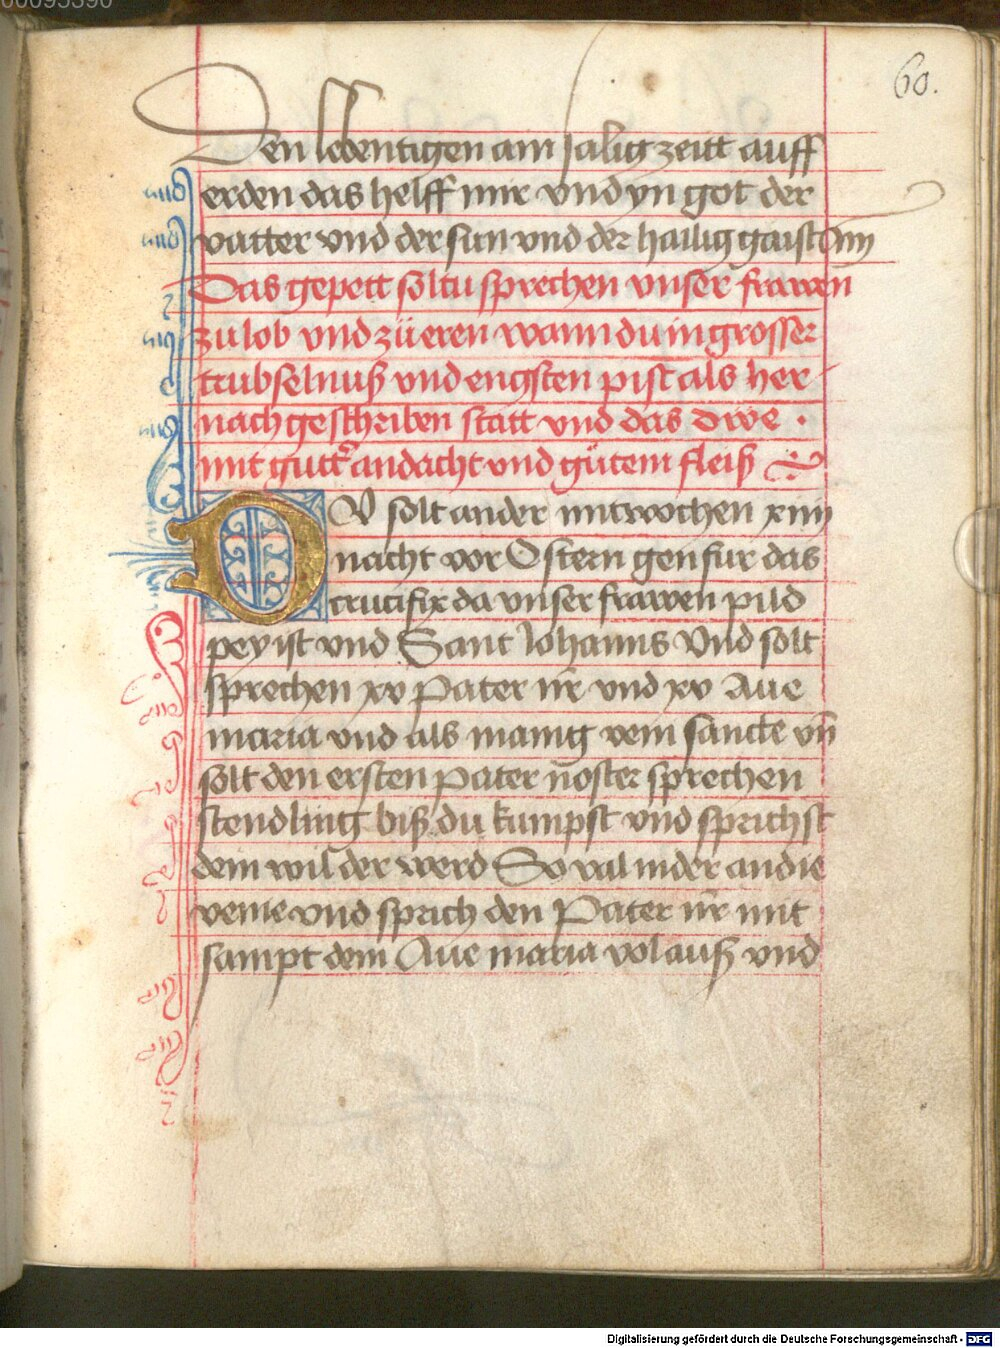 00095390
60.
Den lebentigen ain salig zeitt auff
erden das helff mir vnd yn got der
vatter vnd der sun vnd der hailig gaist Am
Das gepett soltu sprechen vnser frawen
zu lob vnd zü eren wann du in grosser
trubselnuß vnd engsten pist als her
nach geschriben statt vnd das drve ·
mit guttr andacht vnd gütem fleiß
DV solt an der mitwochen xiiij
nacht vor Ostern gen fur das
crucifix da vnser frawen pild
pey ist vnd Sant Iohanns Vnd solt
sprechen xv Pater nr vnd xv Aue
maria vnd als manig veni sancte vn̄
solt den ersten Pater noster sprechen
stendling biß du kumpst vnd sprichst
dein wil der werd So val nider an die
venie vnd sprich den Pater nr mit
sampt dem Aue maria vol auß vnd
Digitalisierung gefördert durch die Deutsche Forschungsgemeinschaft - DFG